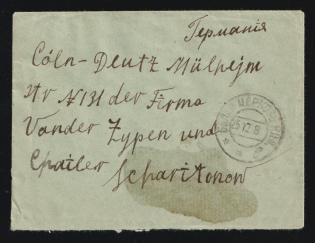 Германія
Cöln-Deutz Mülhejm
Str N 131 der Firma
Vander Zypen und
Charlier Scharitonow